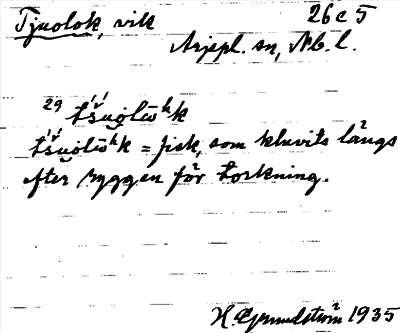 Tjuolok, vik 26 c 5
Arjepl. sn, Nb. l.
29 t́šuo̯lōʰk
t́šuo̯lōʰk = fisk, som kluvits längs
efter ryggen för torkning.
H. Gjerundström 1935